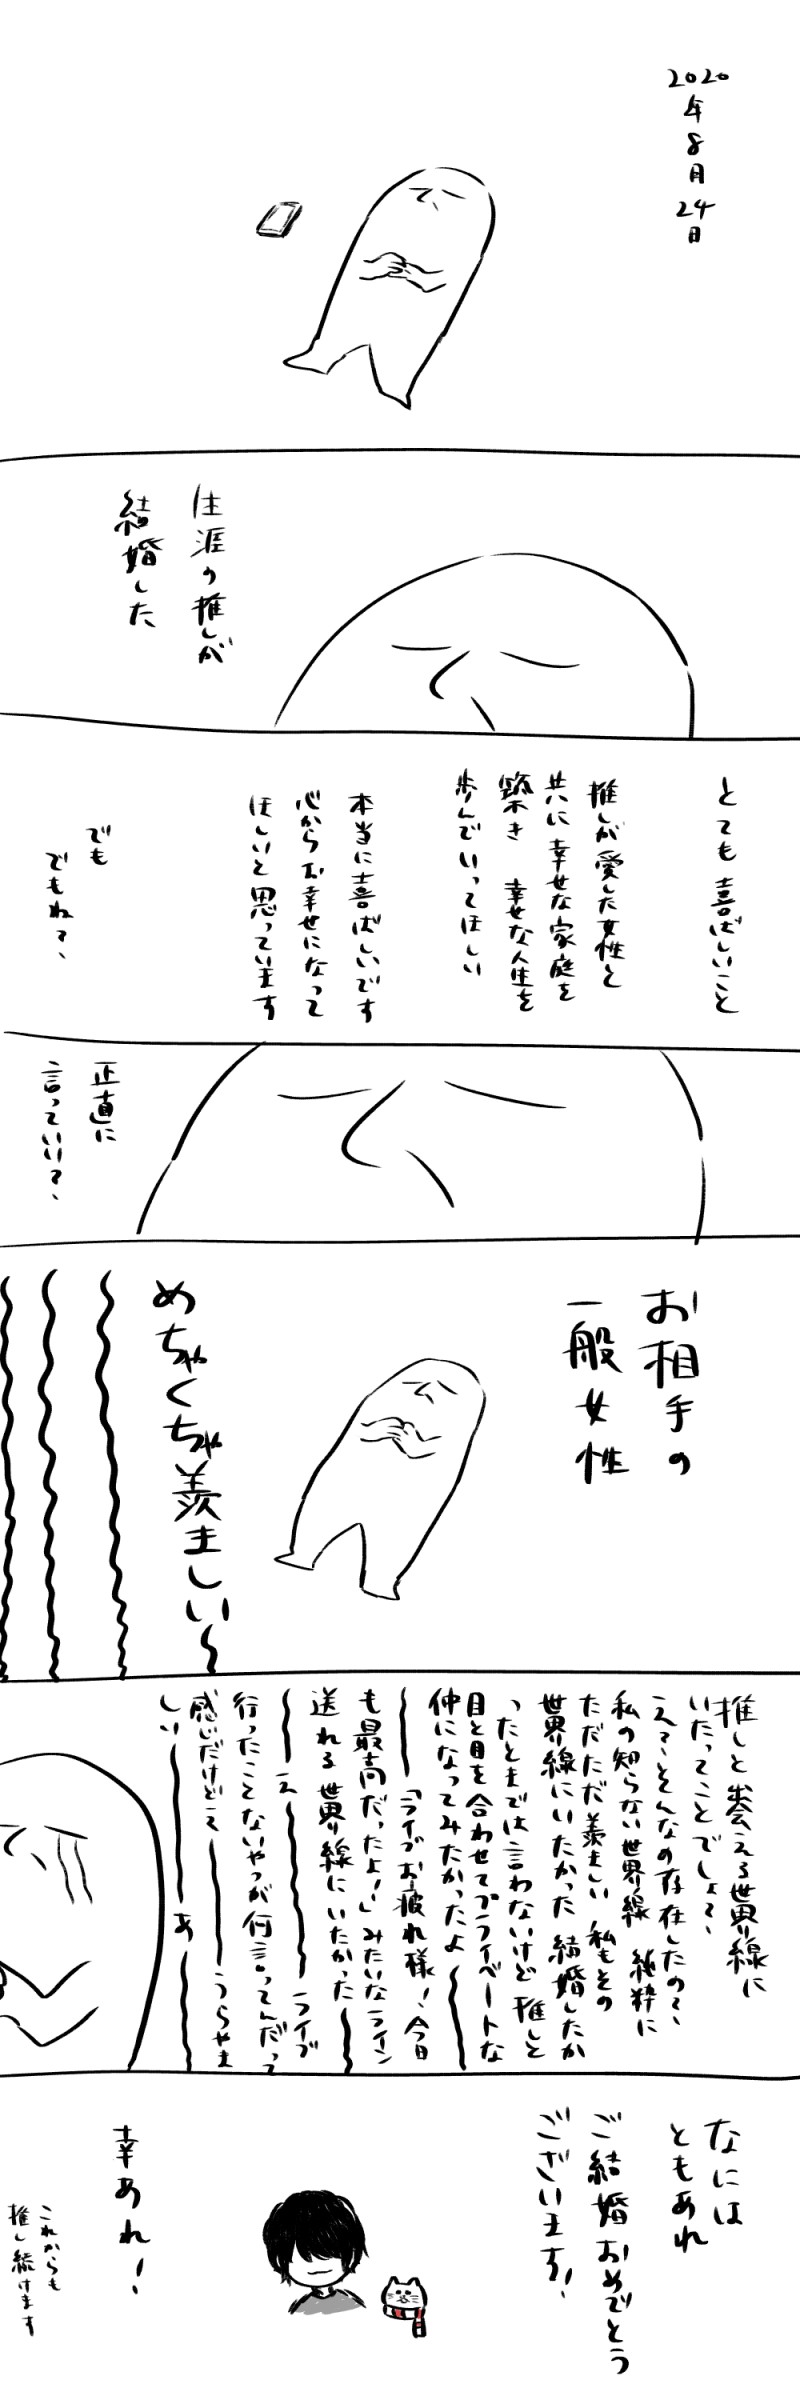 2020年8月24日
生涯の推しが
結婚した
とても喜ばしいこと
推しが愛した女性と
共に幸せな家庭を
築き 幸せな人生を
歩んでいってほしい
本当に喜ばしいです
心からお幸せになって
ほしいと思っています
でも
でもね?、
正直に
言っていい?、
お相手の
一般女性
めちゃくちゃ羨ましい〜
推しと出会える世界線に
いたってことでしょ?、
え?、そんなの存在したの?、
私の知らない世界線 純粋に
ただただ羨ましい 私もその
世界線にいたかった 結婚したか
ったとまでは言わないけど推しと
目と目を合わせてプライベートな
仲になってみたかったよ〜
〜「ライブお疲れ様!、今日
も最高だったよ!」みたいなライン
送れる世界線にいたかった〜
〜え〜ライブ
行ったことないやつが何言ってんだって
感じだけどって〜うらやま
しい〜あ〜
なには
ともあれ
ご結婚おめでとう
ございます!、
幸あれ!、
これからも
推し続けます